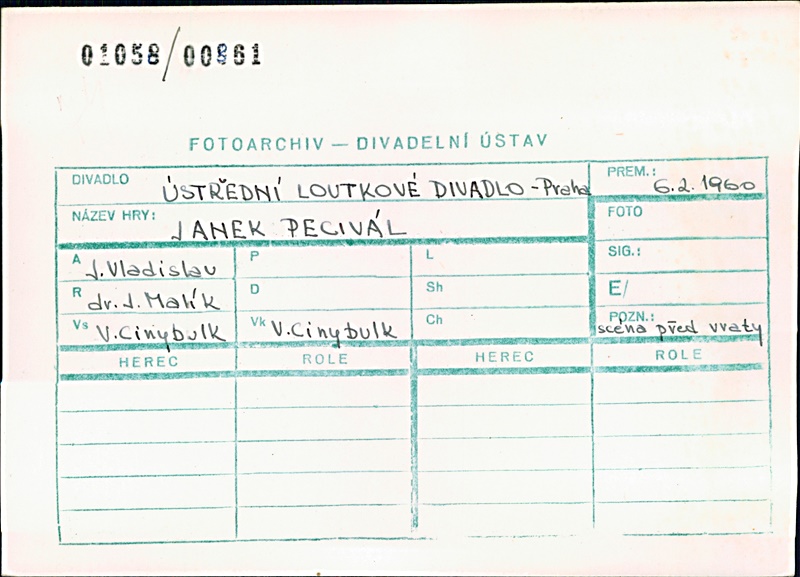 01058/00861
FOTOARCHIV — DIVADELNÍ ÚSTAV
DIVADLO ÚSTŘEDNÍ LOUTKOVÉ DIVADLO - Praha
PREM.: 6.2.1960
NÁZEV HRY: JANEK PECIVÁL
FOTO
A J. Vladislav P L SIG.:
R dr. J. Malík D Sh E/
Vs V. Cinybulk Vk V. Cinybulk Ch POZN.: scéna před vraty
HEREC ROLE HEREC ROLE